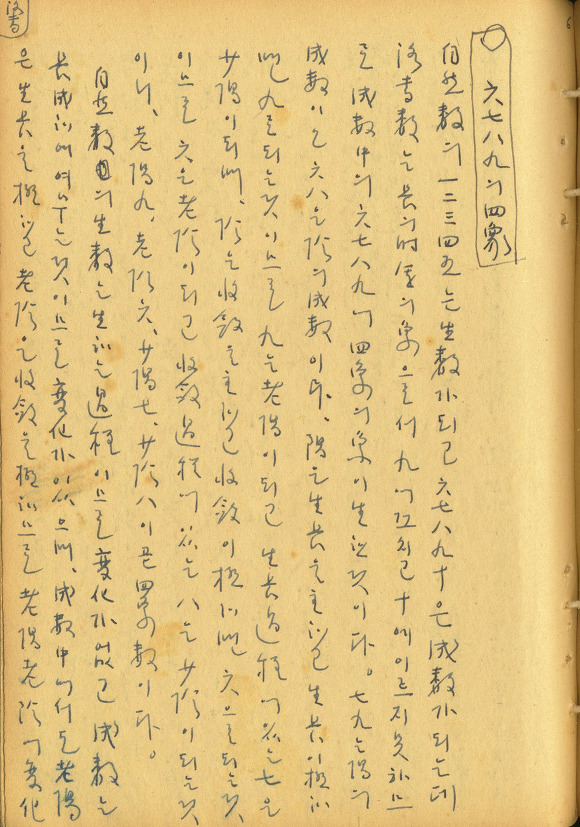 洛書
六七八九의 四象
自然數의 一二三四五는 生數가 되고 六七八九十은 成數가 되는데
洛書數는 長의 時運의 象으로서 九에 끄치고 十에 이르지 못하므
로 成數中의 六七八九에 四象의 象이 生한 것이다。七九는 陽의
成數이고 六八은 陰의 成數이다、陽은 生長을 主하고 生長이 極하
면 九로 되는 것이므로 九는 老陽이 되고 生長過程에 있는 七은
少陽이 되며、陰은 收斂을 主하고 收斂이 極하면 六으로 되는 것
이므로 六은 老陰이 되고 收斂過程에 있는 八은 少陰이 되는 것
이니、老陽九、老陰六、少陽七、少陰八이 곧 四象數이다。
自然數의 生數는 生하는 過程이므로 變化가 없고 成數는
長成하여 여무는 것이므로 變化가 있으며、成數中에서도 老陽
은 生長을 極하고 老陰은 收斂을 極하므로 老陽老陰에 變化